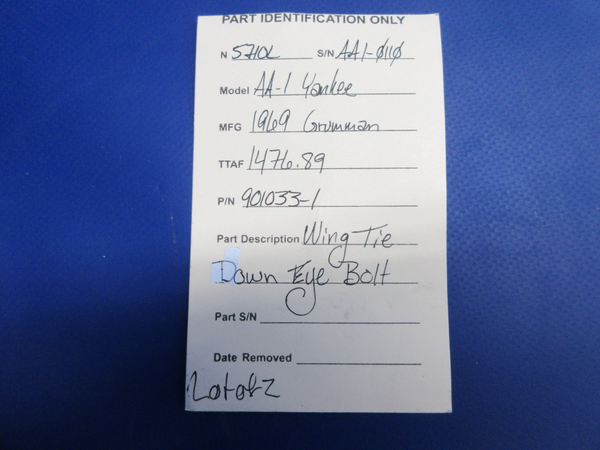 PART IDENTIFICATION ONLY
N 5710L S/N AA1-0110
Model AA-1 Yankee
MFG 1969 Grumman
TTAF 1476.89
P/N 901033-1
Part Description Wing Tie
Down Eye Bolt
Part S/N
Date Removed
Lot of 2